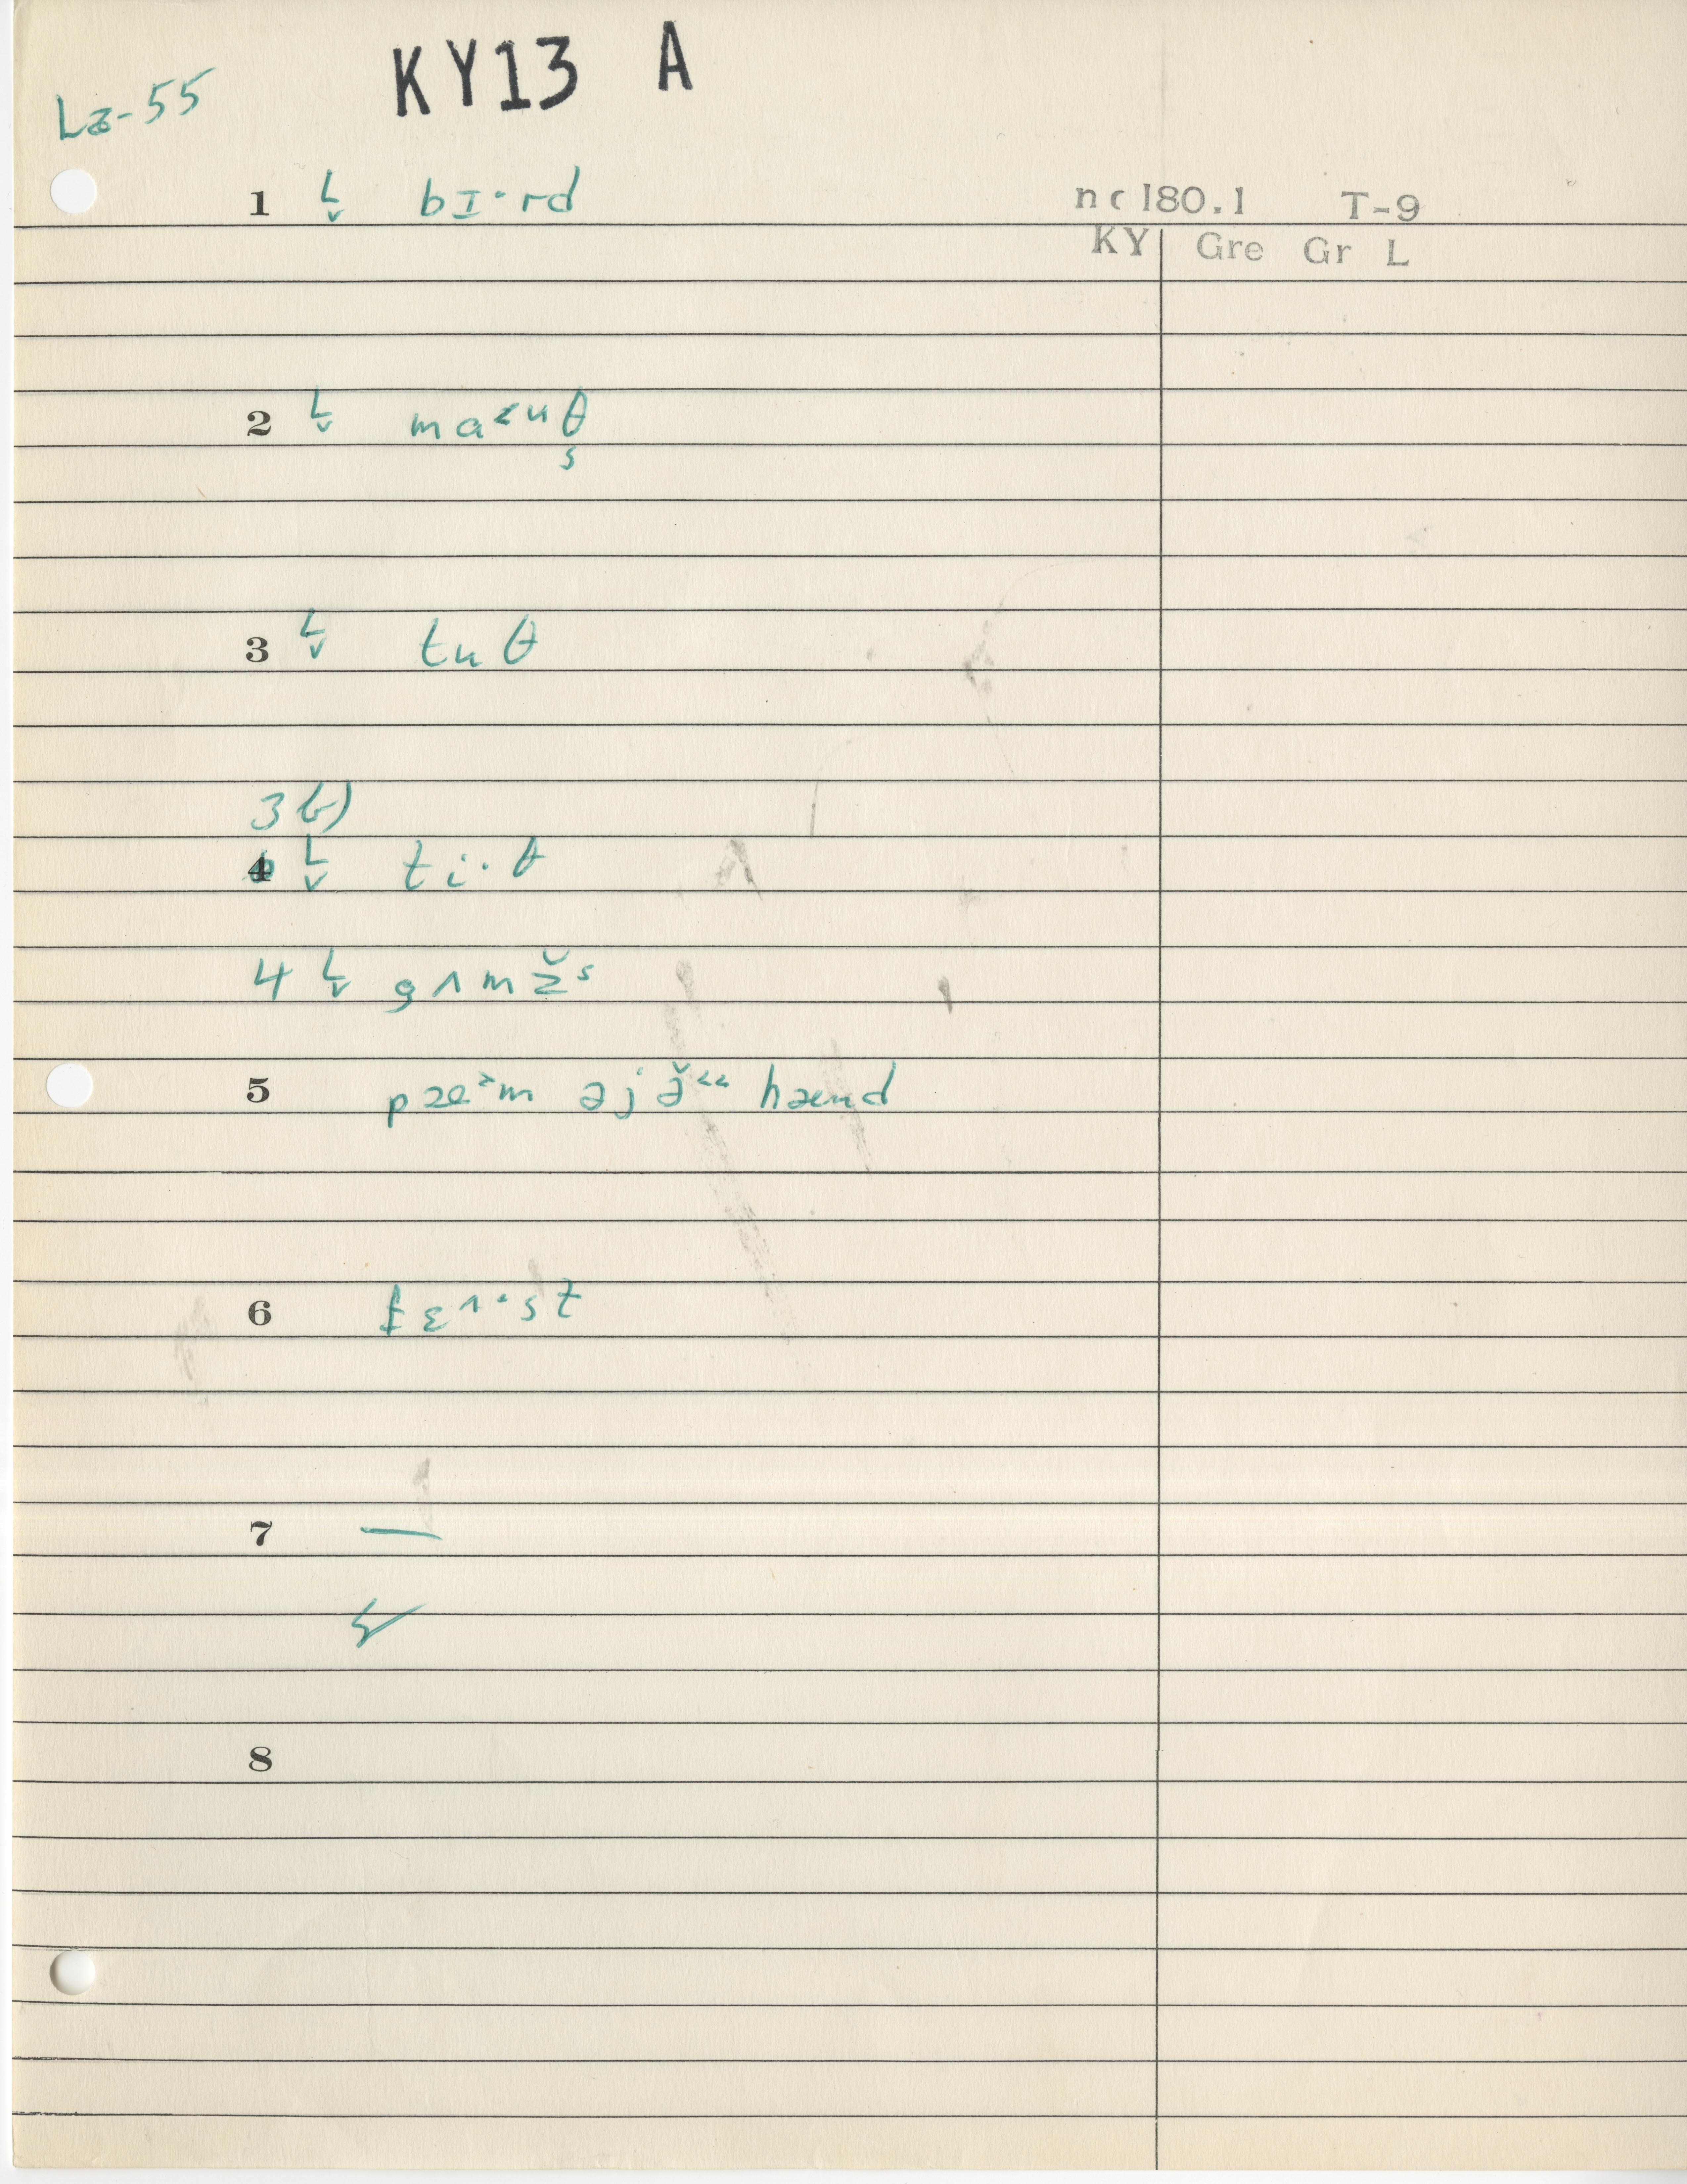 KY13 A
Lz-55
1 L̬ bɪ·rd nc180.1 T-9
KY Gre Gr L
2 L̬ ma<uθ
s
3 L̬ tuθ
3 b)
4 L̬ ti·θ
4 L̬ gʌmž s
5 pæ>m əj ə̌<< hænd
6 fɛ^·st
7 —
8